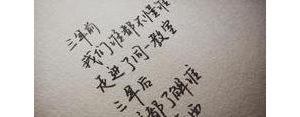 三年前
我们谁都不懂谁
走进了同一教室
三年后
都了解谁
西